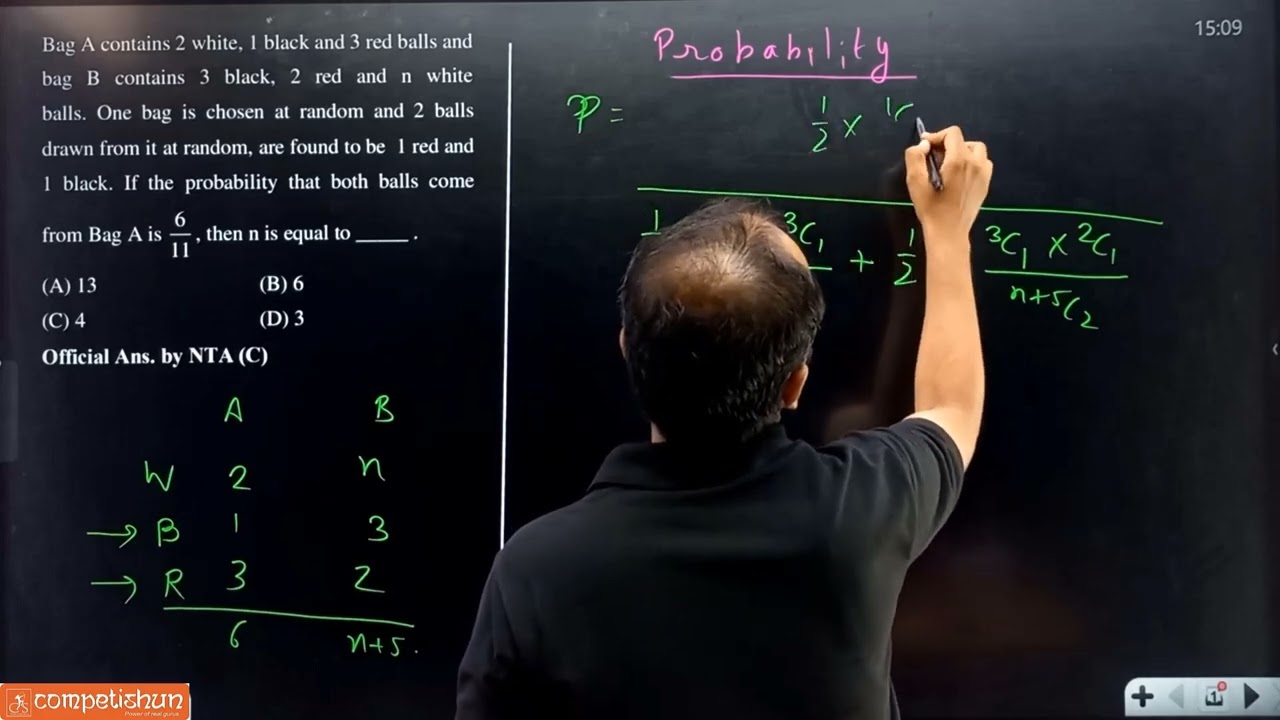 Bag A contains 2 white, 1 black and 3 red balls and
bag B contains 3 black, 2 red and n white
balls. One bag is chosen at random and 2 balls
drawn from it at random, are found to be 1 red and
1 black. If the probability that both balls come
from Bag A is 6/11, then n is equal to _____ .
(A) 13 (B) 6
(C) 4 (D) 3
Official Ans. by NTA (C)
A B
W 2 n
→ B 1 3
→ R 3 2
6 n+5.
Probability
15:09
P =
1/2 ×
1
³C₁ + 1/2 ³C₁ × ²C₁
n+5C₂
competishun
Power of real gurus
1